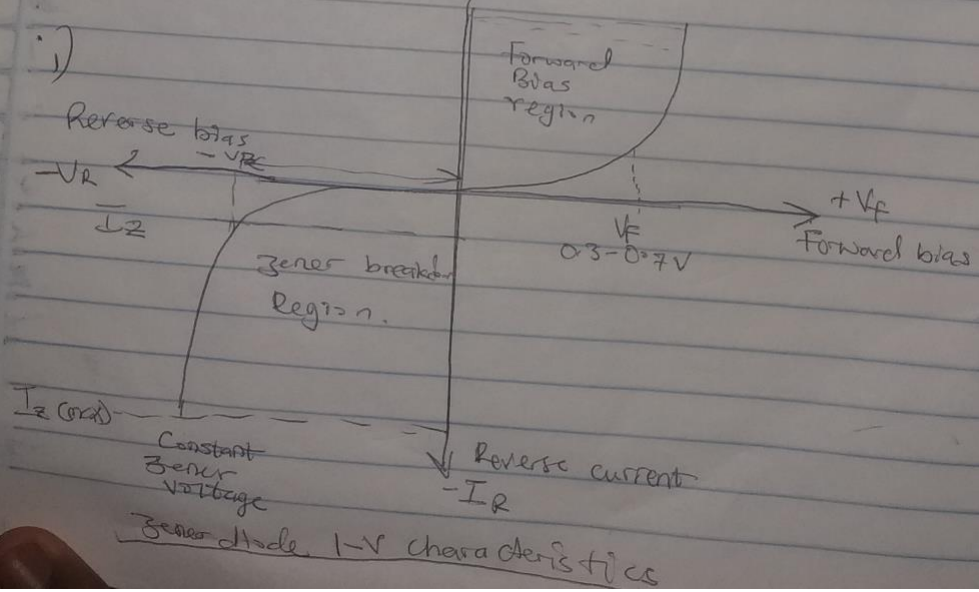 i)
Forward
Bias
region
Reverse bias
-VR
+VF
Forward bias
VF
0.3-0.7V
IZ
Zener breakdo
Region.
IZ (max)
Constant
Zener
Voltage
Reverse current
-IR
Zener diode I-V characteristics